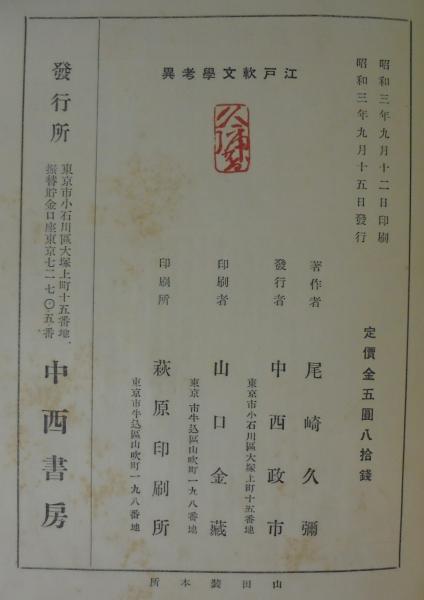 昭和三年九月十二日印刷
昭和三年九月十五日發行
江戸軟文學考異
定價金五圓八拾錢
著作者 尾崎久彌
發行者 中西政市
東京市小石川區大塚上町十五番地
印刷者 山口金藏
東京市牛込區山吹町一九八番地
印刷所 萩原印刷所
東京市牛込區山吹町一九八番地
發行所 中西書房
東京市小石川區大塚上町十五番地、
振替貯金口座東京七二七〇・五番
山田裝本所